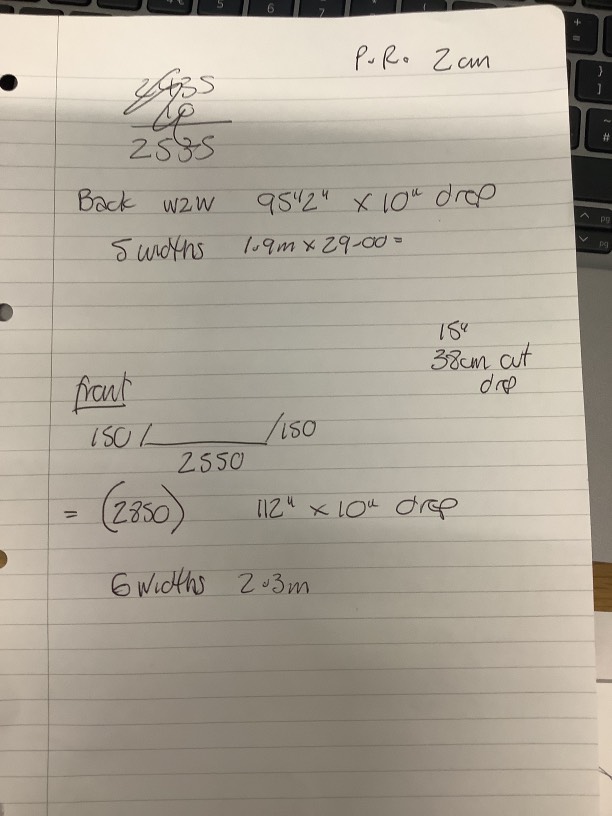 P.R. 2cm
2535
Back W2W 95½" x 10" drop
5 widths 1.9m x 29-00=
15"
38cm cut
drop
front
150 / /150
2550
= (2850) 112" x 10" drop
6 widths 2.3m